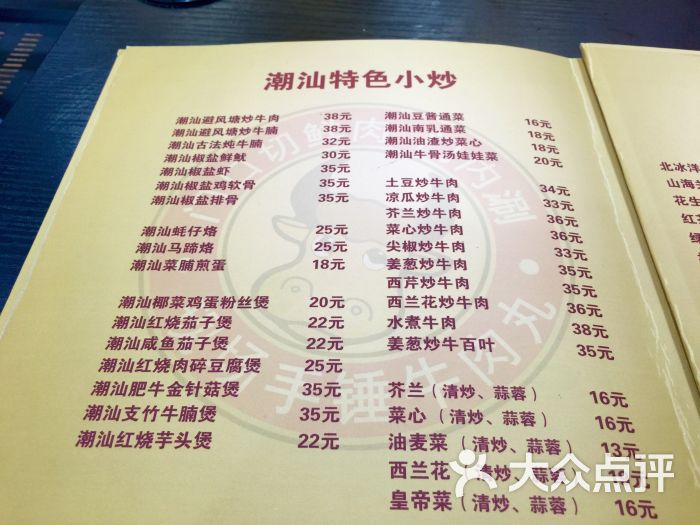 潮汕特色小炒
潮汕避风塘炒牛肉 38元
潮汕避风塘炒牛腩 38元
潮汕古法炖牛腩 32元
潮汕椒盐鲜鱿 30元
潮汕椒盐虾 35元
潮汕椒盐鸡软骨 35元
潮汕椒盐排骨 35元
潮汕蚝仔烙 25元
潮汕马蹄烙 25元
潮汕菜脯煎蛋 18元
潮汕椰菜鸡蛋粉丝煲 20元
潮汕红烧茄子煲 22元
潮汕咸鱼茄子煲 22元
潮汕红烧肉碎豆腐煲 25元
潮汕肥牛金针菇煲 35元
潮汕支竹牛腩煲 35元
潮汕红烧芋头煲 22元
潮汕豆酱通菜 16元
潮汕南乳通菜 18元
潮汕油渣炒菜心 18元
潮汕牛骨汤娃娃菜 20元
土豆炒牛肉 34元
凉瓜炒牛肉 33元
芥兰炒牛肉 36元
菜心炒牛肉 36元
尖椒炒牛肉 33元
姜葱炒牛肉 35元
西芹炒牛肉 35元
西兰花炒牛肉 36元
水煮牛肉 38元
姜葱炒牛百叶 35元
芥兰（清炒、蒜蓉） 16元
菜心（清炒、蒜蓉） 16元
油麦菜（清炒、蒜蓉） 13元
西兰花（清炒、蒜蓉）
皇帝菜（清炒、蒜蓉） 16元
北冰洋
山海
花生
手锤牛肉丸
大众点评